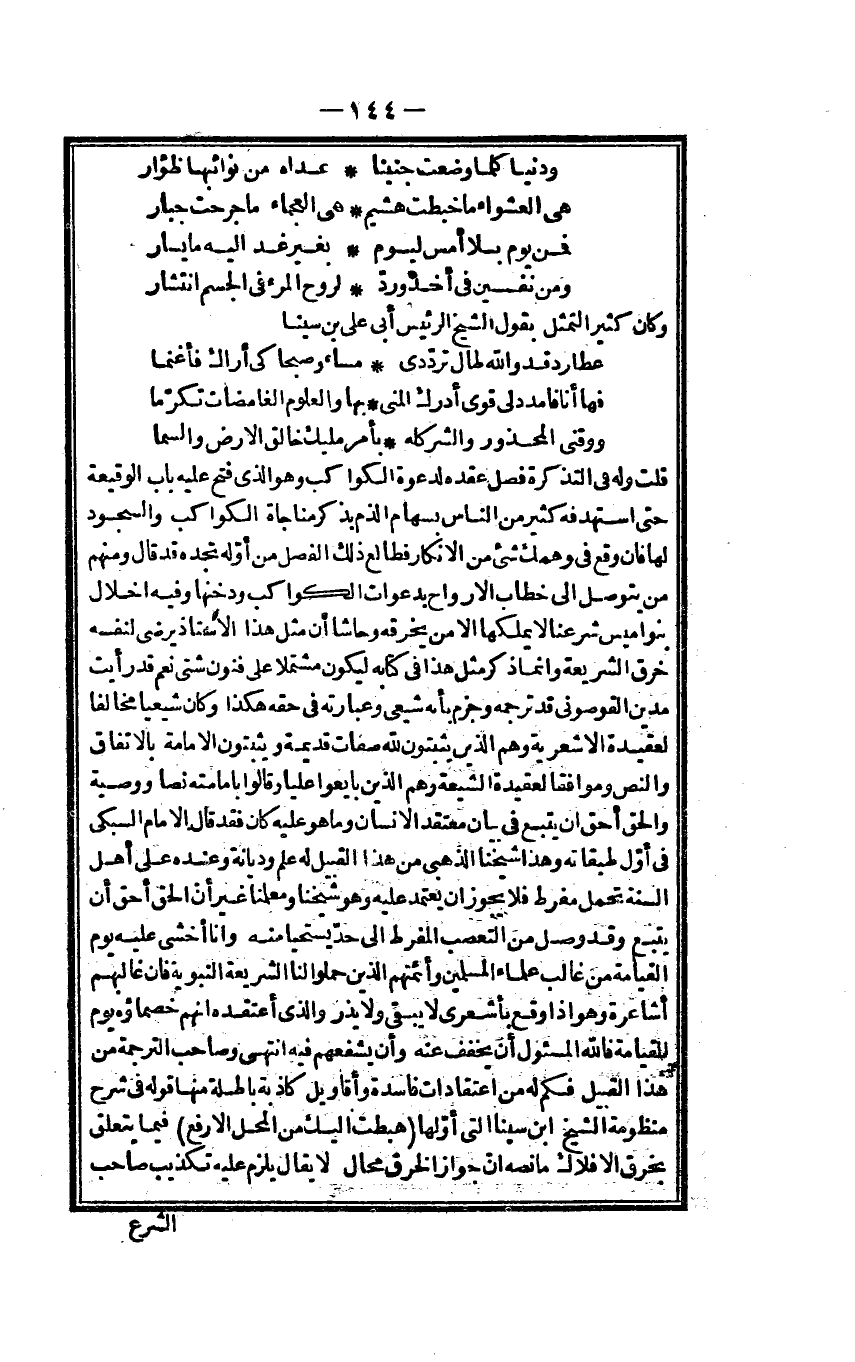 — ١٤٤ —
ودنيا كلما وضعت جنينا * عداه من نوائبها ظؤار
هى العشواء ما خبطت هشيم * هى العجماء ما جرحت جبار
فمن يوم بلا أمس ليوم * بغير غد اليه ما يسار
ومن نفسين فى أخذ ورد * لروح المرء فى الجسم انتشار
وكان كثير التمثل بقول الشيخ الرئيس أبى على بن سينا
عطارد قد والله طال ترددى * مساء وصبحا كى أراك فأغنما
فها أنا فامدد لى قوى أدرك المنى * بها والعلوم الغامضات تكرّما
ووقنى المحذور والشر كله * بأمر مليك خالق الارض والسما
قلت وله فى التذكرة فصل عقده لدعوة الكواكب وهو الذى فتح عليه باب الوقيعة
حتى استهدفه كثير من الناس بسهام الذم بذكر مناجاة الكواكب والسجود
لها فان وقع فى وهمك شئ من الانكار فطالع ذلك الفصل من أوّله تجده قد قال ومنهم
من يتوصل الى خطاب الارواح بدعوات الكواكب ودخنها وفيه اخلال
بنواميس شرعنا لا يملكها الا من يخرقه وحاشا أن مثل هذا الاستاذ يرضى لنفسه
خرق الشريعة وانما ذكر مثل هذا فى كتابه ليكون مشتملا على فنون شتى نعم قد رأيت
مدين القوصونى قد ترجمه وجزم بأنه شيعى وعبارته فى حقه هكذا وكان شيعيا مخالفا
لعقيدة الاشعرية وهم الذين يثبتون لله صفات قديمة ويثبتون الامامة بالاتفاق
والنص وموافقا لعقيدة الشيعة وهم الذين بايعوا عليا وقالوا بامامته نصا ووصية
والحق أحق ان يتبع فى بيان معتقد الانسان وما هو عليه كان فقد قال الامام السبكى
فى أوّل طبقاته وهذا شيخنا الذهبى من هذا القبيل له علم وديانة وعنده على أهل
السنة تحمل مفرط فلا يجوز ان يعتمد عليه وهو شيخنا ومعلمنا غير أنّ الحق أحق أن
يتبع وقد وصل من التعصب المفرط الى حدّ يستحيا منه وانا أخشى عليه يوم
القيامة من غالب علماء المسلمين وأئمتهم الذين حملوا لنا الشريعة النبوية فان غالبهم
أشاعرة وهو اذا وقع بأشعرى لا يبقى ولا يذر والذى أعتقده انهم خصماؤه يوم
القيامة فالله المسئول أن يخفف عنه وأن يشفعهم فيه انتهى وصاحب الترجمة من
هذا القبيل فكم له من اعتقادات فاسدة وأقاويل كاذبة باطلة منها قوله فى شرح
منظومة الشيخ ابن سينا التى أوّلها (هبطت اليك من المحل الارفع) فيما يتعلق
بخرق الافلاك ما نصه انّ جواز الخرق محال لا يقال يلزم عليه تكذيب صاحب
الشرع